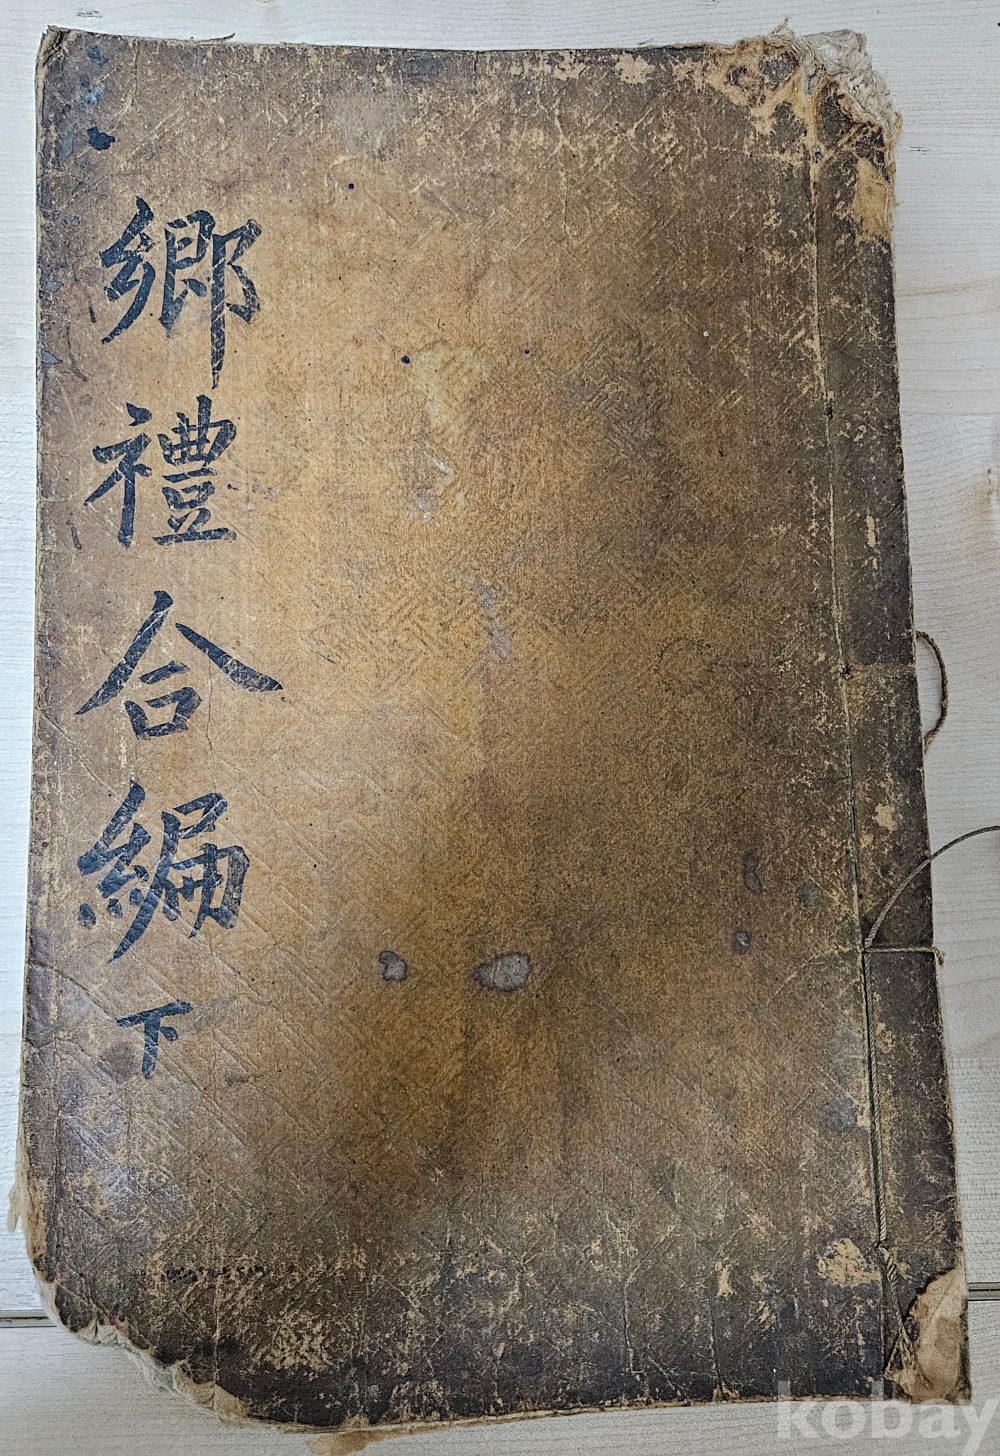 鄉禮合編 下
kobay